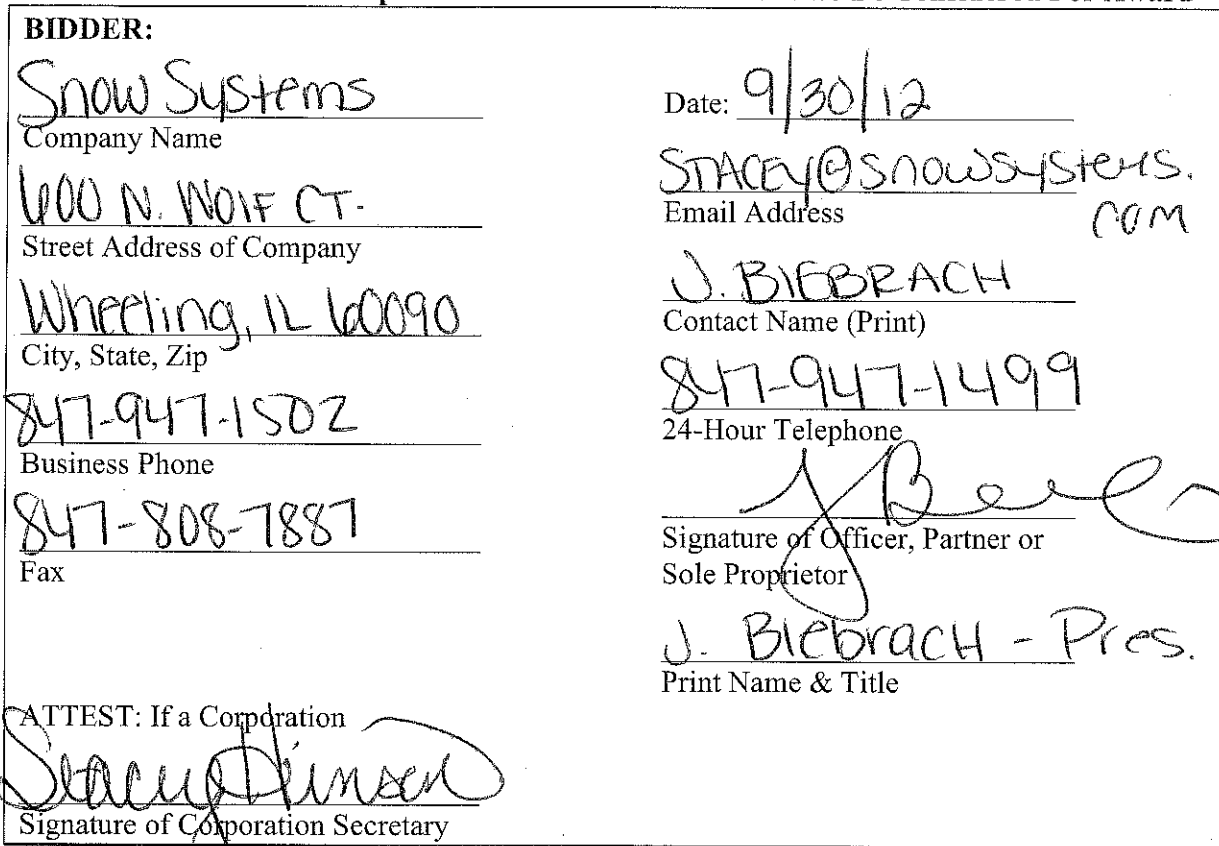 BIDDER:
Snow Systems
Company Name
600 N. WOLF CT.
Street Address of Company
Wheeling, IL 60090
City, State, Zip
847-947-1502
Business Phone
847-808-7887
Fax
ATTEST: If a Corporation
Signature of Corporation Secretary
Date: 9/30/12
STACEY@snowsystems.
com
Email Address
J. BIEBRACH
Contact Name (Print)
847-947-1499
24-Hour Telephone
Signature of Officer, Partner or
Sole Proprietor
J. Biebrach - Pres.
Print Name & Title